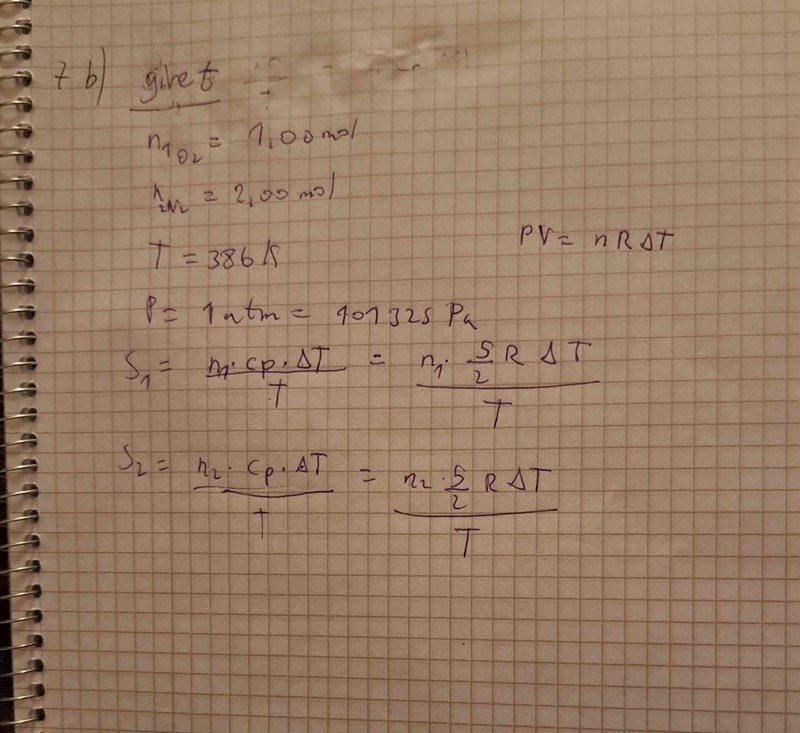 7 b) givet
n₁O₂ = 1,00 mol
n₂N₂ = 2,00 mol
PV = nRΔT
T = 386 K
P = 1 atm = 101325 Pa
S₁ = n₁·cp·ΔT / T = n₁·5/2 R ΔT / T
S₂ = n₂·cp·ΔT / T = n₂·5/2 R ΔT / T